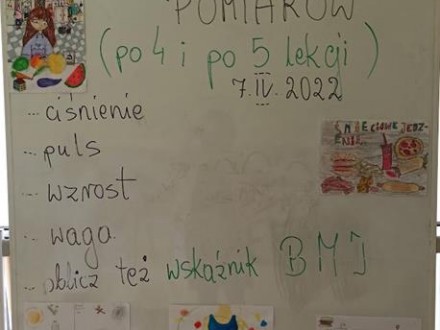 POMIARÓW
(po 4 i po 5 lekcji)
7.IV.2022
... ciśnienie
... puls
... wzrost
... waga
... oblicz też wskaźnik BMI
ŚMIECIOWE JEDZENIE